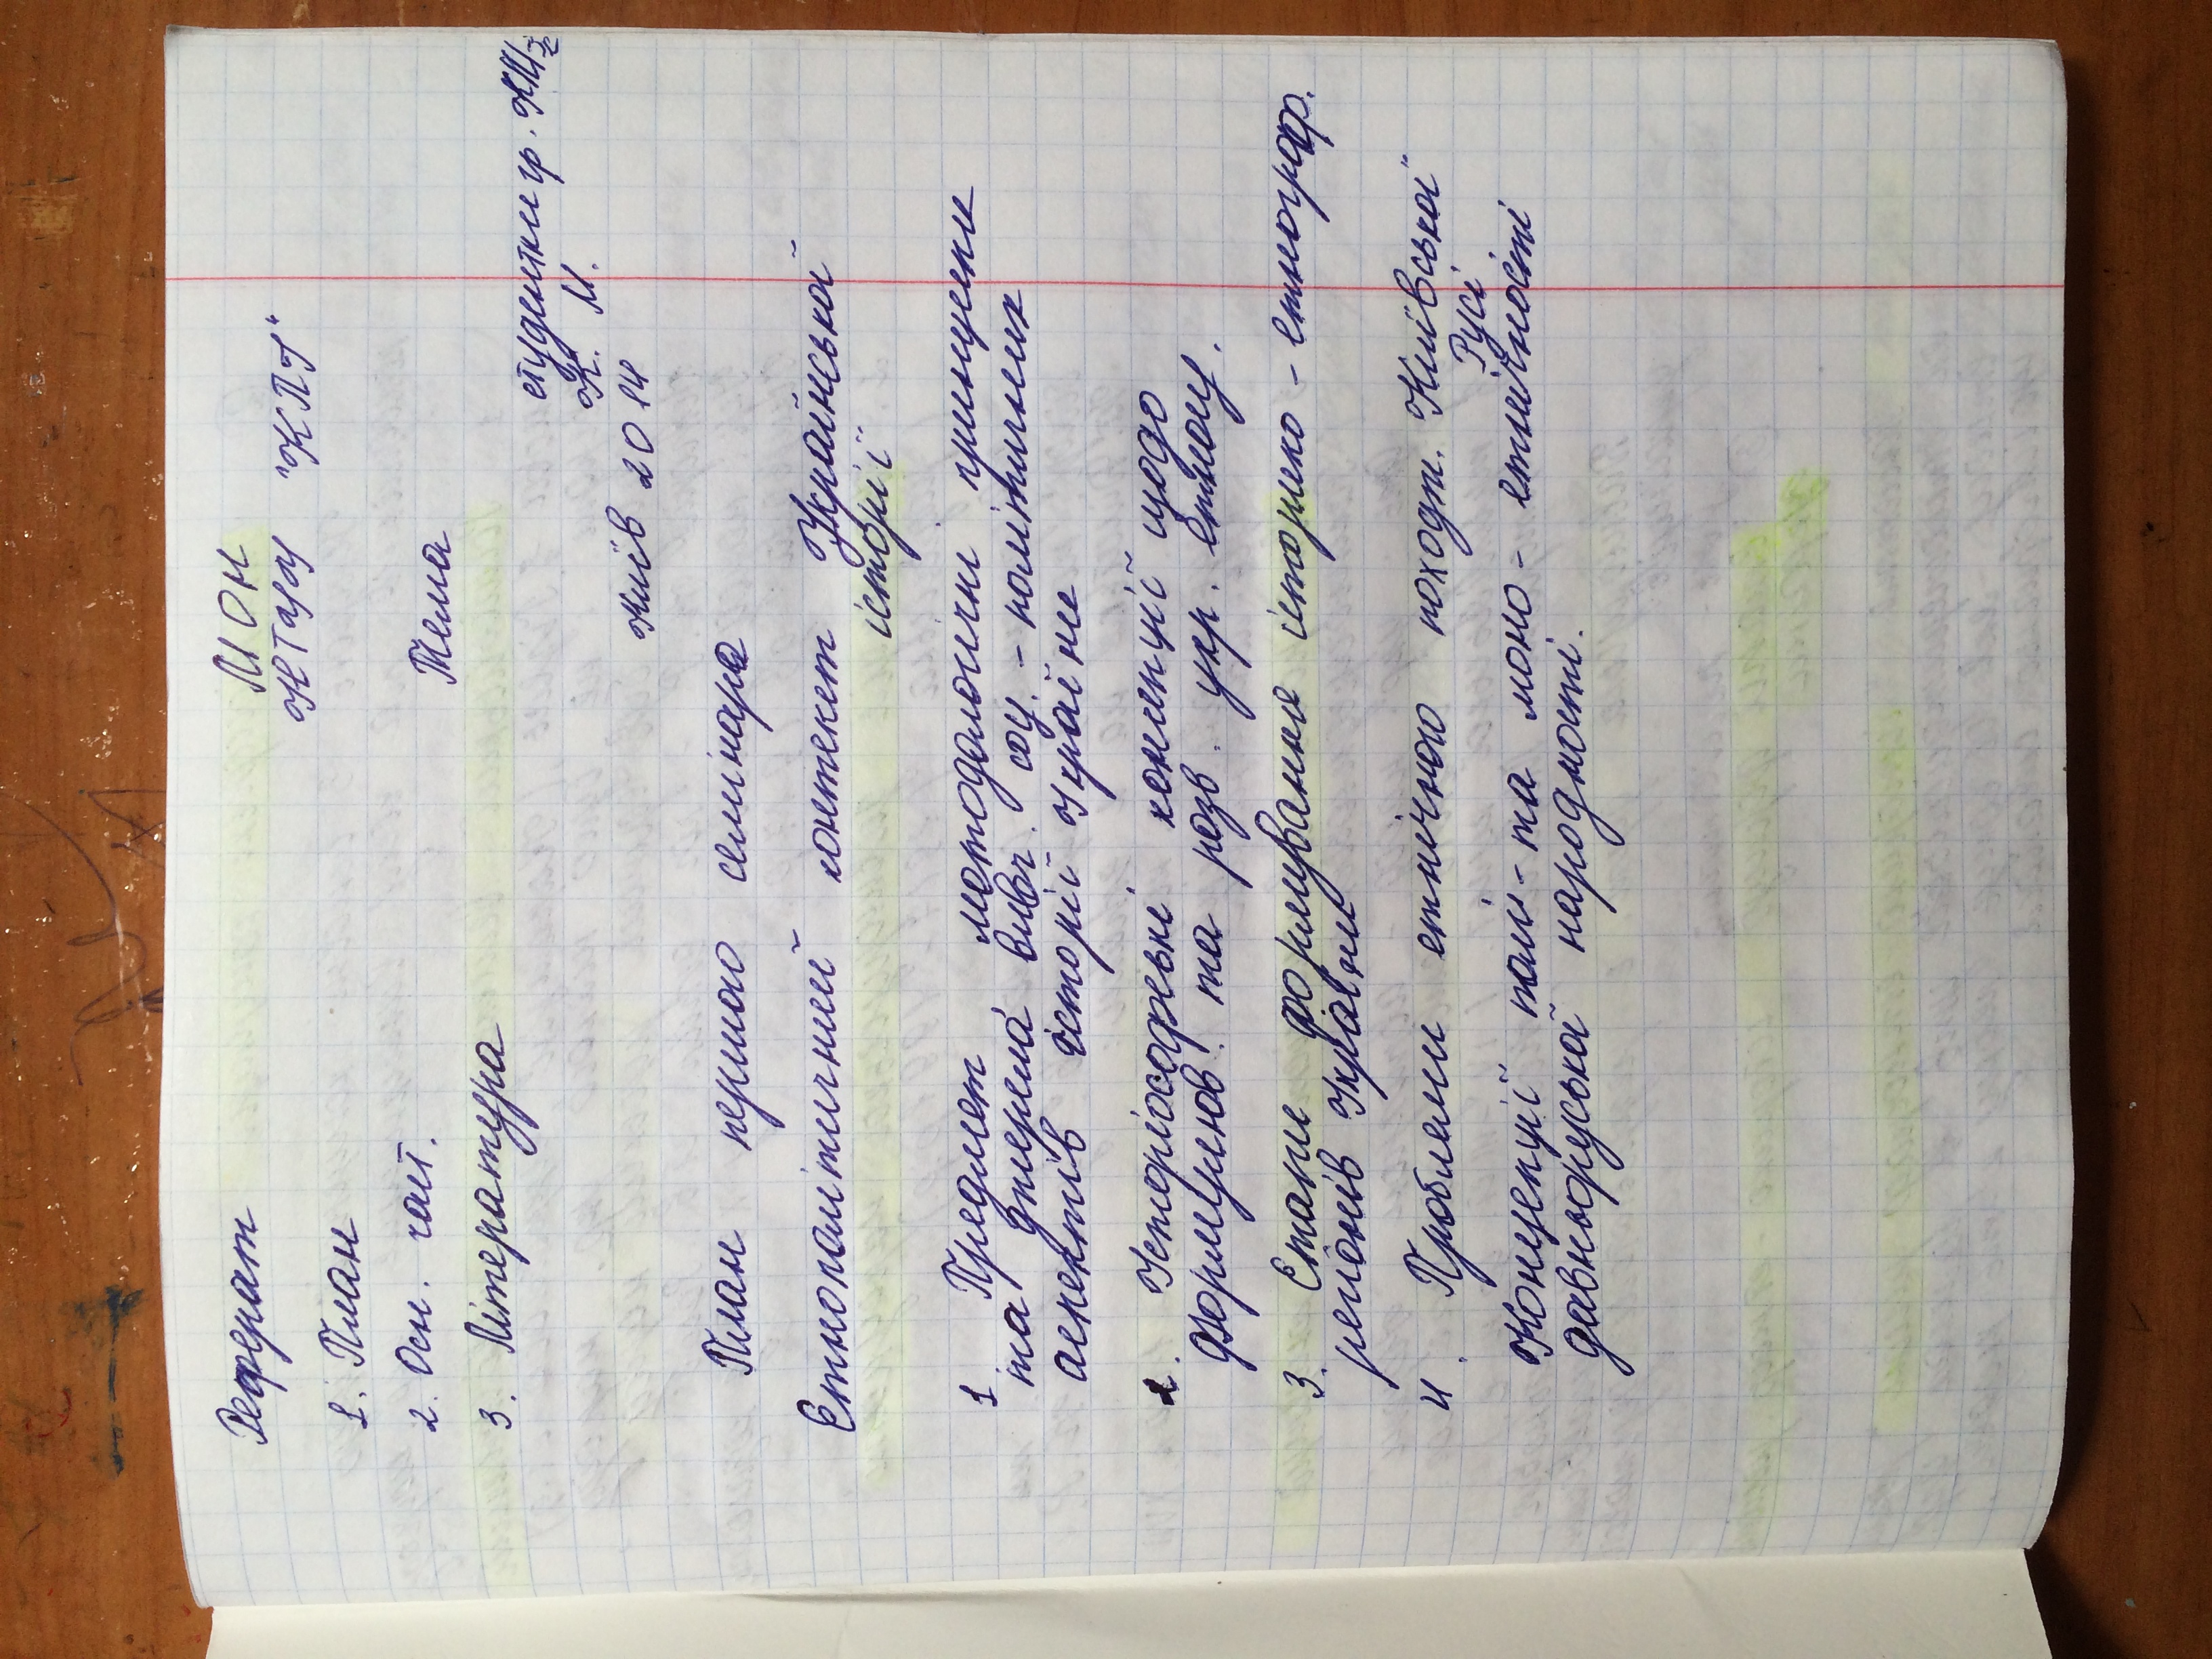 Реферат
1. План
2. Осн. част.
3. Література
МОН
НТУУ "КПІ"
Тема
студентки гр.
К. М.
Київ 2014
План першого семінара
Етнополітичний контекст Української
історії
1. Предмет, методологічні принципи
та джерела вивч. соц. - політичних
аспектів історії України
2. Історіософські концепції щодо
формулюв. та розв. укр. етносу.
3. Етапи формування історико - етнограф.
регіонів України
4. Проблеми етнічного походж. Київської
Русі
Концепції полі - та моно - етнічності
давньоруської народності.